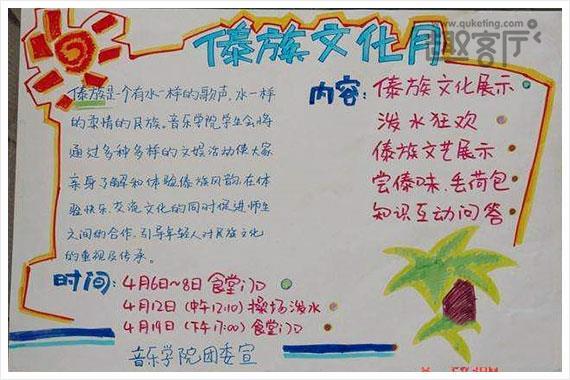 www.quketing.com
趣客厅
傣族文化月
傣族是个有水一样的歌声,水一样
的柔情的民族。音乐学院学生会将
通过多种多样的文娱活动使大家
亲身了解和体验傣族风韵,在体
验快乐,交流文化的同时促进师生
之间的合作,引导年轻人对民族文化
的重视及传承。
内容:傣族文化展示
泼水狂欢
傣族文艺展示
尝傣味、丢荷包
知识互动问答
时间:4月6日~8日 食堂门口
4月12日(中午12:10)操场泼水
4月19日(下午17:00)食堂门口
音乐学院团委宣